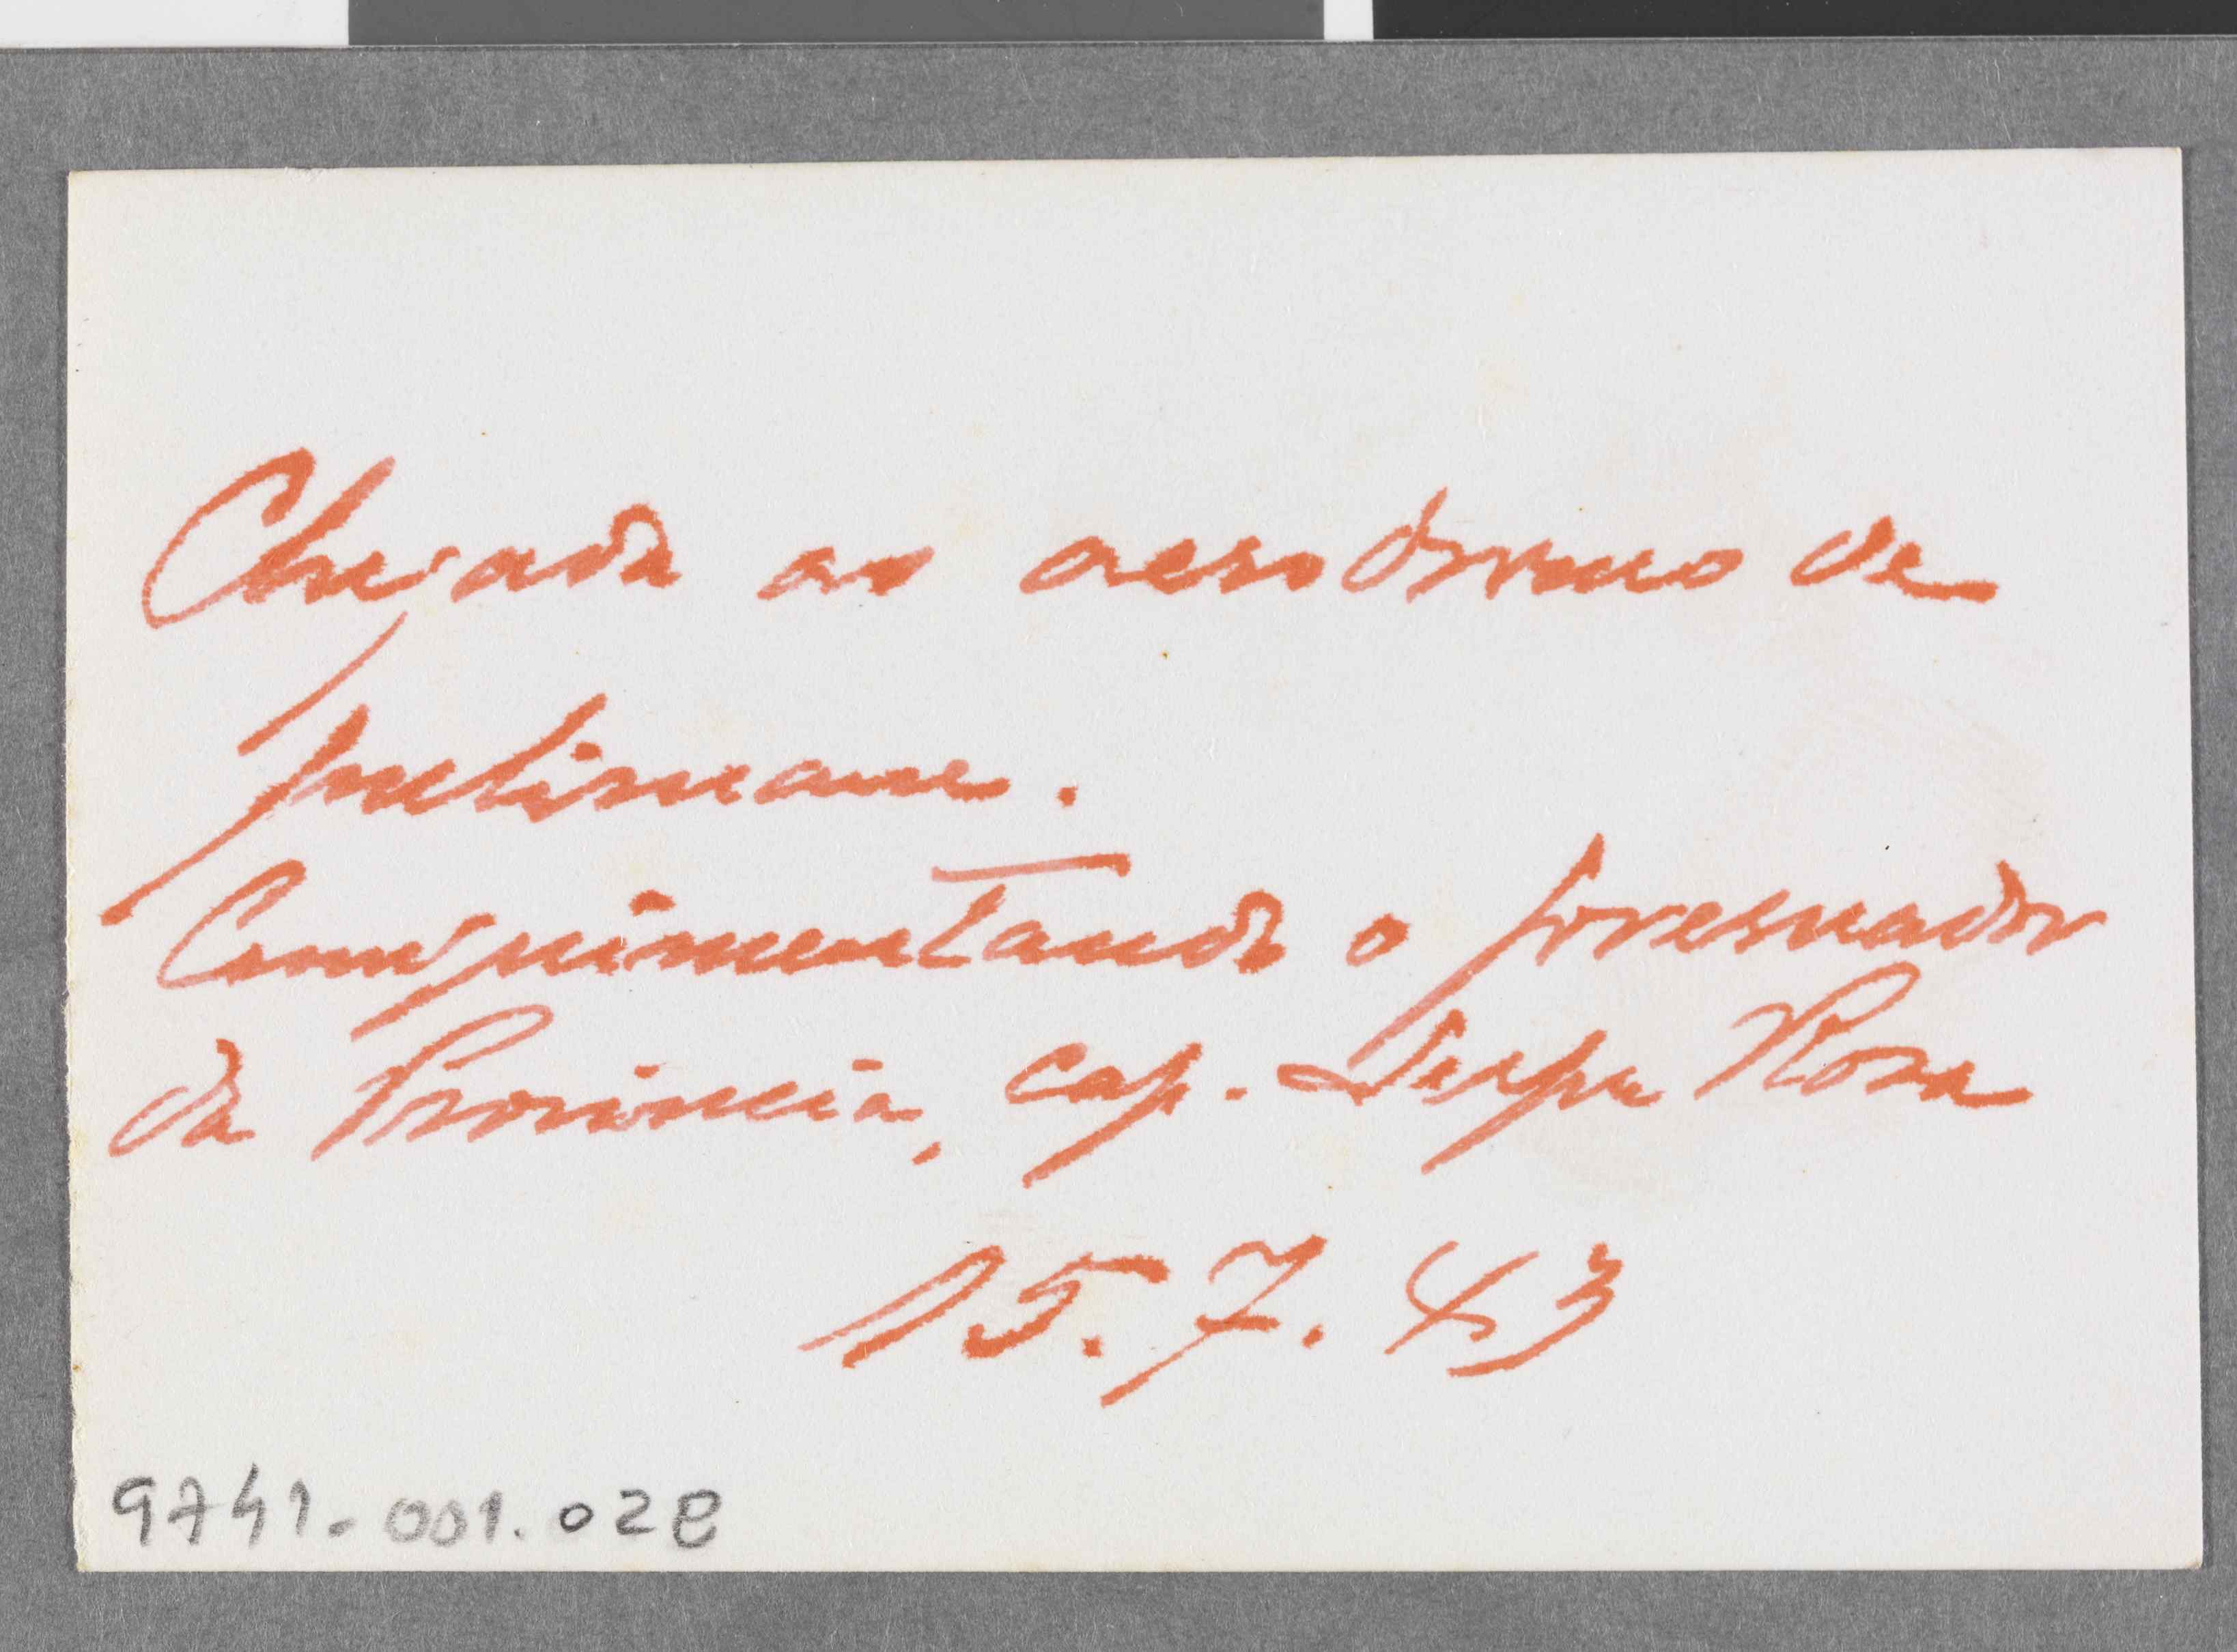 Chegada ao aerodromo de
Quelimane.
Cumprimentando o Governador
da Provincia, cap. Serpa Rosa
15.7.43
9741-001.028